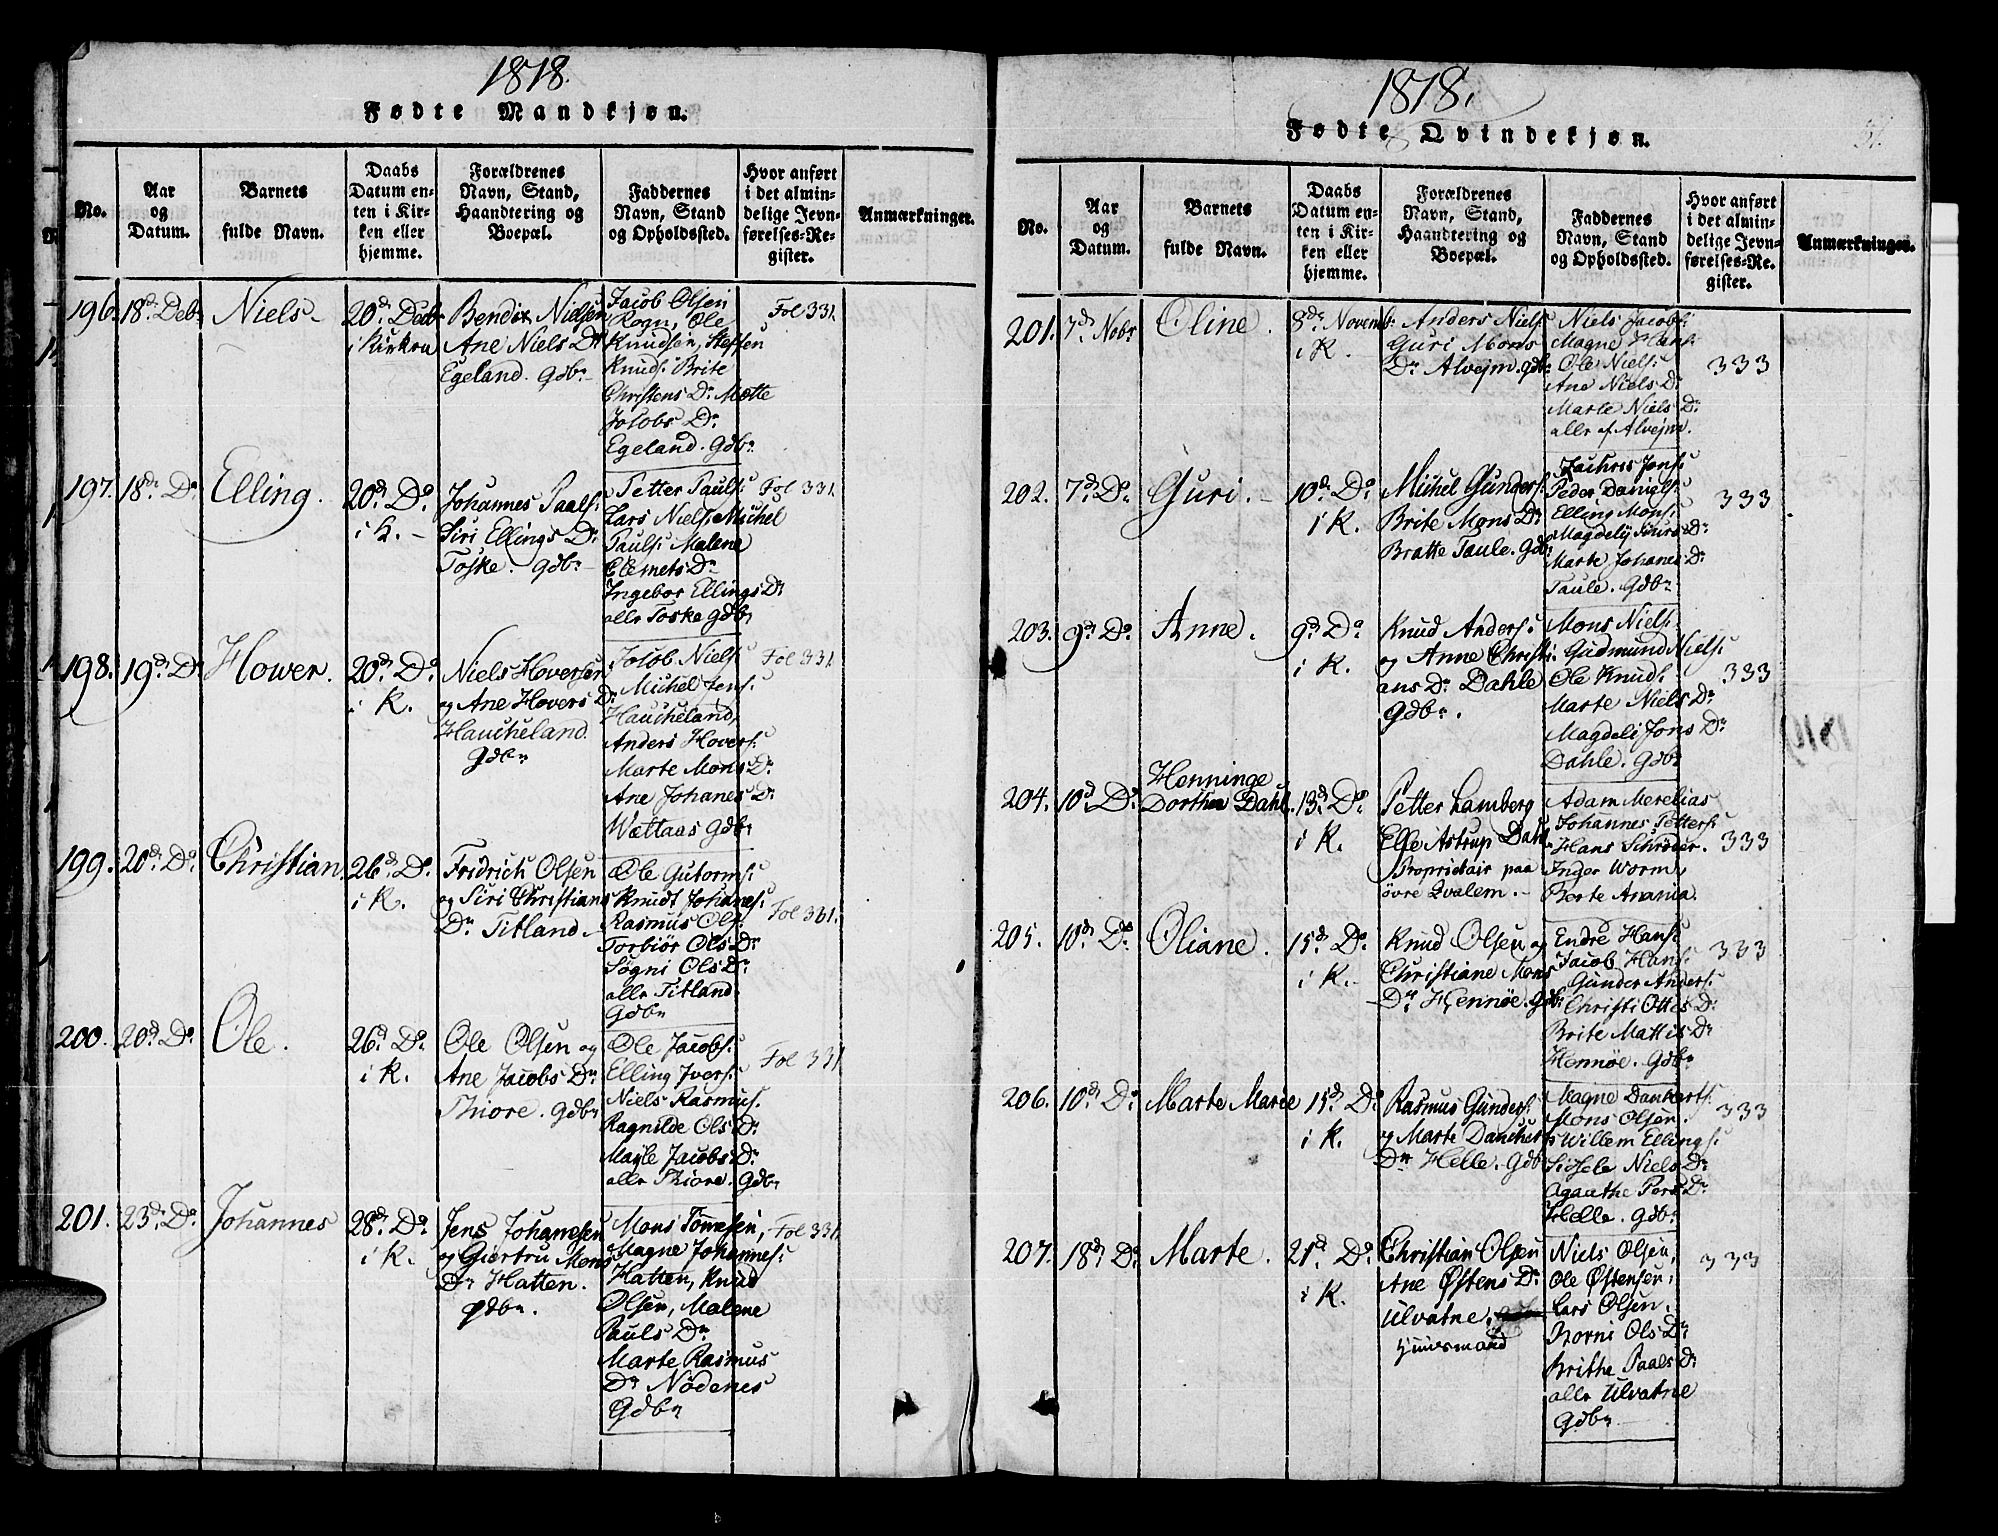 1818.
Fødte Mandkjøn.
No.
Aar
og
Datum.
Barnets
fulde Navn.
Daabs
Datum en-
ten i Kir-
ken eller
hjemme.
Forældrenes
Navn, Stand,
Haandtering og
Boepæl.
Faddernes
Navn, Stand
og Opholdssted.
Hvor anført
i det almin-
delige Jevn-
førelses-Re-
gister.
Anmærkninger.
196. 18d. Debr.
Niels
20d. Debr.
i Kirken
Bendix Nielsen
Ane Niels Dr.
Egeland. Gdbr.
Jacob Olsen
Rogn, Ole
Knudsen, Steffen
Knuds: Brite
Christens Dr. Mætte
Jolobs Dr.
Egeland. Gdbr.
Fol 331.
197. 18d. Do.
Elling.
20d. Do.
i K.
Johannes Paals:
Siri Ellings Dr.
Toske. Gdbr.
Petter Pauls:
Lars Niels: Michel
Pauls: Malene
Clemets Dr.
Ingebor Ellings Dr.
alle Toske Gdbr
Fol 331.
198. 19d. Do.
Hower.
20d. Do.
i K.
Niels Hoversen
og Ane Hovers Dr.
Haucheland.
Gdbr
Jolob Niels:
Michel Jens:
Haucheland,
Anders Hovers:
Marte Mons Dr.
Ane Johanes Dr.
Wættaas Gdbr
Fol 331.
199. 20d. Do.
Christian.
26d. D.
i K.
Fridrich Olsen
og Siri Christians
Dr. Titland
Ole Gutorms:
Knudt Johanes:
Rasmus Ols:
Torbiör Ols Dr.
Søgni Ols Dr.
alle Titland.
Gdbr
Fol 331.
200. 20d. Do.
Ole.
26d. Do.
i K.
Ole Olsen og
Ane Jacobs Dr.
Thiore. Gdbr
Ole Jacobs:
Elling Ivers:
Niels Rasmus:
Ragnilde Ols Dr.
Mayle Jacobs Dr.
alle Thiore. Gdbr
Fol 331
201. 23d. Do.
Johannes
28d. Do.
i K.
Jens Johannesen
og Giertru Mons
Dr. Hatten.
Gdbr.
Mons Tønnesen,
Magne Johannes:
Hatten, Knud
Olsen, Malene
Pauls Dr.
Marte Rasmus
Dr. Nödenes
Gdbr
Fol 331
1818.
Fødte Qvindekjøn.
No.
Aar
og
Datum.
Barnets
fulde Navn.
Daabs
Datum en-
ten i Kir-
ken eller
hjemme.
Forældrenes
Navn, Stand,
Haandtering og
Boepæl.
Faddernes
Navn, Stand
og Opholdssted.
Hvor anført
i det almin-
delige Jevn-
førelses-Re-
gister.
Anmærkninger.
201. 7d. Nobr
Oline.
8d. Novemb:
i K.
Anders Niels:
Guri Mons
Dr. Alvejm. Gdbr
Niels Jacobs:
Magne Hans:
Ole Niels:
Ane Niels Dr.
Marte Niels Dr.
alle af Alvejm.
333
202. 7d. Do.
Guri.
10d. Do.
i K.
Michel Gunders:
Brite Mons Dr.
Bratte Taule. Gdbr
Zachris Jons:
Peder Daniels:
Elling Mons:
Magdely Siurs Dr.
Marte Johanes Dr.
Taule. Gdbr
333
203. 9d. Do.
Anne.
9d. Do.
i K.
Knud Anders:
og Anne Christi-
ans Dr. Dahle
Gdbr.
Mons Niels:
Gudmund Niels:
Ole Knuds:
Marte Niels Dr.
Magdeli Jons Dr.
Dahle. Gdbr
333
204. 10d. Do.
Henninge
Dorthea Dahl.
13d. Do.
i K.
Petter Lamberg
Else Astrup Dahl
Proprietair paa
övre Qvalem.
Adam Merelias
Johannes Petters:
Hans Schröder.
Inger Worm
Berte Anania.
333
205. 10d. Do.
Oliane.
15d. Do.
i K.
Knud Olsen og
Christiane Mons
Dr. Hennöe. Gdbr
Endre Hans:
Jacob Hans:
Gunder Anders:
Christi Ottes Dr.
Brite Mattis Dr.
Hennöe. Gdbr
333
206. 10d. Do.
Marte Marie
15d. Do.
i K.
Rasmus Gunders:
og Marte Dancherts
Dr. Helle. Gdbr
Magne Dankerts:
Mons Olsen.
Willem Ellings:
Sidsele Niels Dr.
Agaathe Pers Dr.
Helle. Gdbr
333
207. 18d. Do.
Marte.
21d. Do.
i K.
Christian Olsen
Ane Østens Dr.
Ulvatne.
Huusmand
Niels Olsen,
Ole Østensen,
Lars Olsen.
Borni Ols Dr.
Brithe Paals Dr.
alle Ulvatne
Gdbr
333